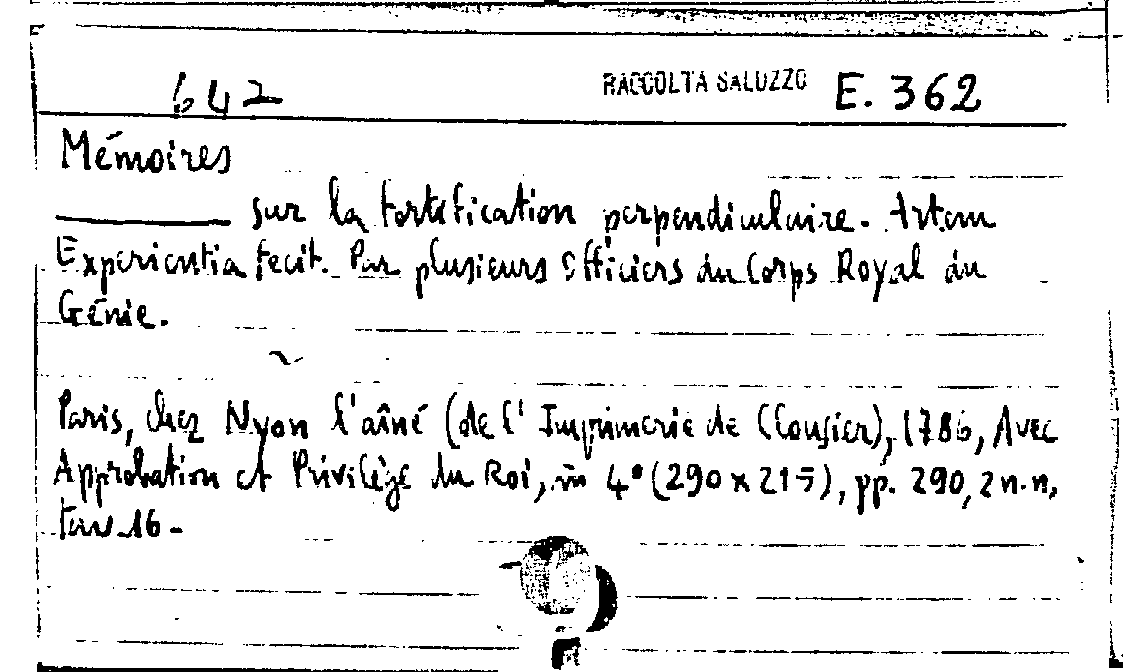 642 RACCOLTA SALUZZO E. 362
Mémoires
sur la fortification perpendiculaire. Artem
Experientia fecit. Par plusieurs Officiers du Corps Royal du
Génie.
Paris, chez Nyon l'aîné (de l'Imprimerie de Clousier), 1786, Avec
Approbation et Privilège du Roi, in 4° (290 x 215), pp. 290, 2 n.n,
tav. 16 -